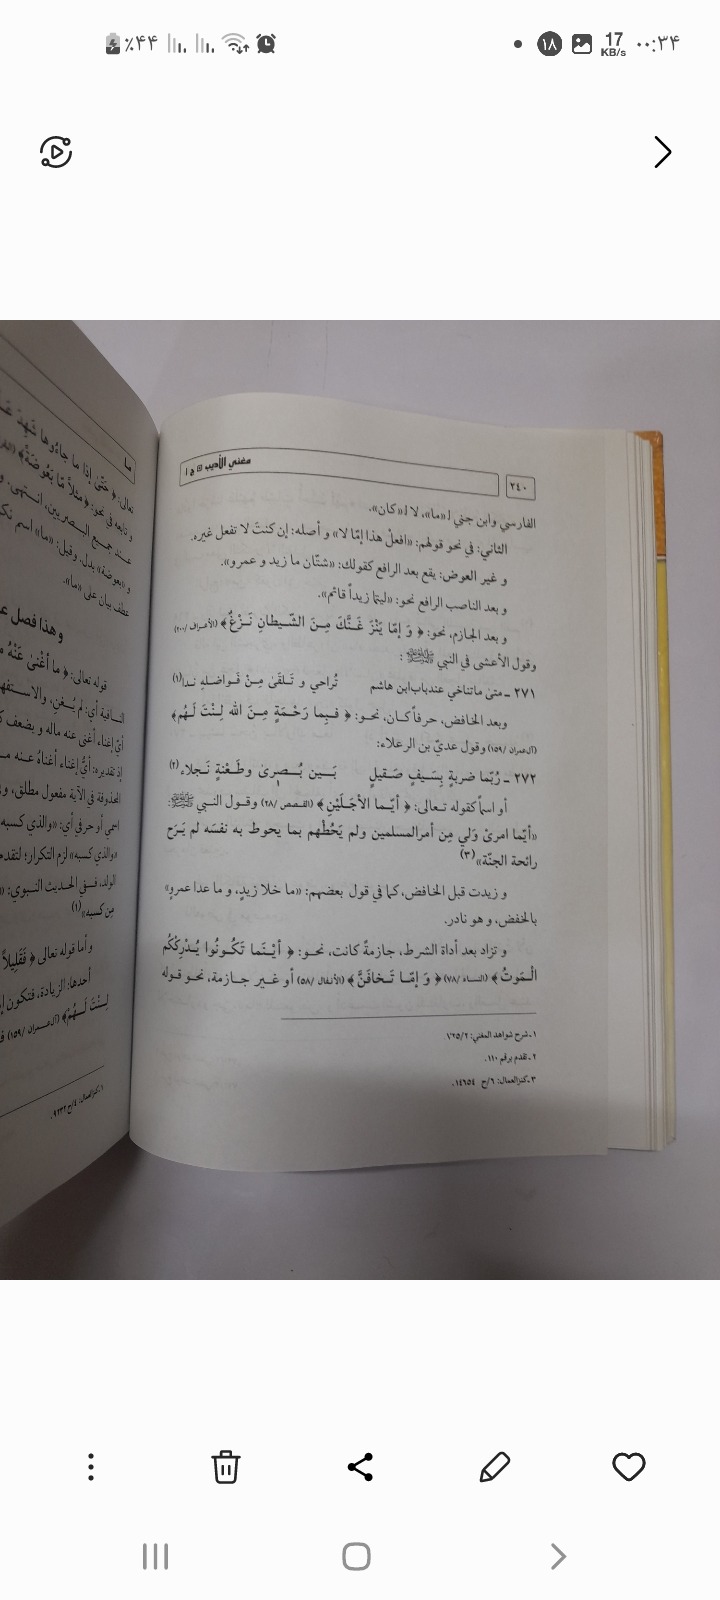 ٪۴۴
۱۸
17
KB/s
۰۰:۳۴
مغني الأديب ج ١
٢٤٠
الفارسي وابن جني لـ«ما»، لا لـ«كان».
الثاني: في نحو قولهم: «افعلْ هذا إمّا لا» و أصله: إن كنتَ لا تفعل غيره.
و غير العوض: يقع بعد الرافع كقولك: «شتّان ما زيد و عمرو».
و بعد الناصب الرافع نحو: «ليتما زيداً قائم».
و بعد الجازم، نحو: ﴿ وَ إمّا يَنْزَ غَـنَّكَ مِـنَ الشّـيطانِ نَـزْغٌ﴾ (الأعراف /٢٠٠)
وقول الأعشى في النبي ﷺ :
٢٧١ ـ متى ماتناخي عندباب‌ابن هاشم تُراحي و تَـلقَىٰ مِـنْ فَـواضـلهِ نـدا(١)
وبعد الخافض، حرفاً كـان، نحـو: ﴿ فـبِما رَحْـمَةٍ مِـنَ الله لِـنْتَ لَـهُم﴾
(آل‌عمران /١٥٩) وقول عديّ بن الرعلاء:
٢٧٢ ـ رُبّما ضربةٍ بِسَيفٍ صَـقيلٍ بَـين بُـصرىٰ وطَـعْنةٍ نَـجلاء(٢)
أو اسماً كقوله تـعالى: ﴿ أيَّـما الأجَـلَيْنِ ﴾ (القـصص /٢٨) وقـول النـبي ﷺ:
«أيّما امرئ وَلي مِن أمرالمسلمين ولم يَحُطْهم بما يحوط به نفسَه لم يَـرَح
رائحة الجنّة»(٣)
و زيدت قبل الخافض، كما في قول بعضهم: «ما خلا زيدٍ، و ما عدا عمرو»
بالخفض، و هو نادر.
و تزاد بعد أداة الشرط، جازمةً كانت، نحـو: ﴿ أيـْنَـما تَكُـونُوا يُـدْرِكْكُم
الْـمَوتُ﴾ (النساء /٧٨) ﴿ وَ إمّـا تَـخافَنَّ﴾ (الأنفال /٥٨) أو غـير جـازمة، نحـو قـوله
١ـ شرح شواهد المغني: ٧٢٥/٢
٢ـ تقدم برقم ١١٠.
٣ـ كنزالعمال: ٦/ح ١٤٦٥٤.
ما
تعالى: ﴿ حَتّىٰ إذا ما جاءُوها شَهِدَ
و تابعه في نحو: ﴿مثلاً مّا بَعُوضَةً﴾
عند جميع البصريين، انتهى.
و«بعوضة» بدل. وقيل: «ما» اسم
عطف بيان على «ما».
وهذا فصل
قوله تعالى: ﴿ ما أغْنىٰ عَنْهُ
النـافية أي: لم يُـغنِ، والاسـتفه
أيّ إغناء أغنى عنه ماله و يضعف
إذ تقديره: أيُّ إغناء أغناهُ عـنه
المحذوفة في الآية مفعول مطلق،
اسمي أو حرفي أي: «والذي كسبه
«والذي كسبه» لزم التكرار؛ لتقدم
الولد، فـفي الحديث النـبوي:
مِن كسبه»(١)
و أما قوله تعالى ﴿ فَقَلِيلاً
أحدها: الزيادة، فتكون
لِـنْتَ لَـهُمْ﴾ (آل‌عـمران /١٥٩)
١ـ كنزالعمال: ٤/ح ٩٢٣٢.